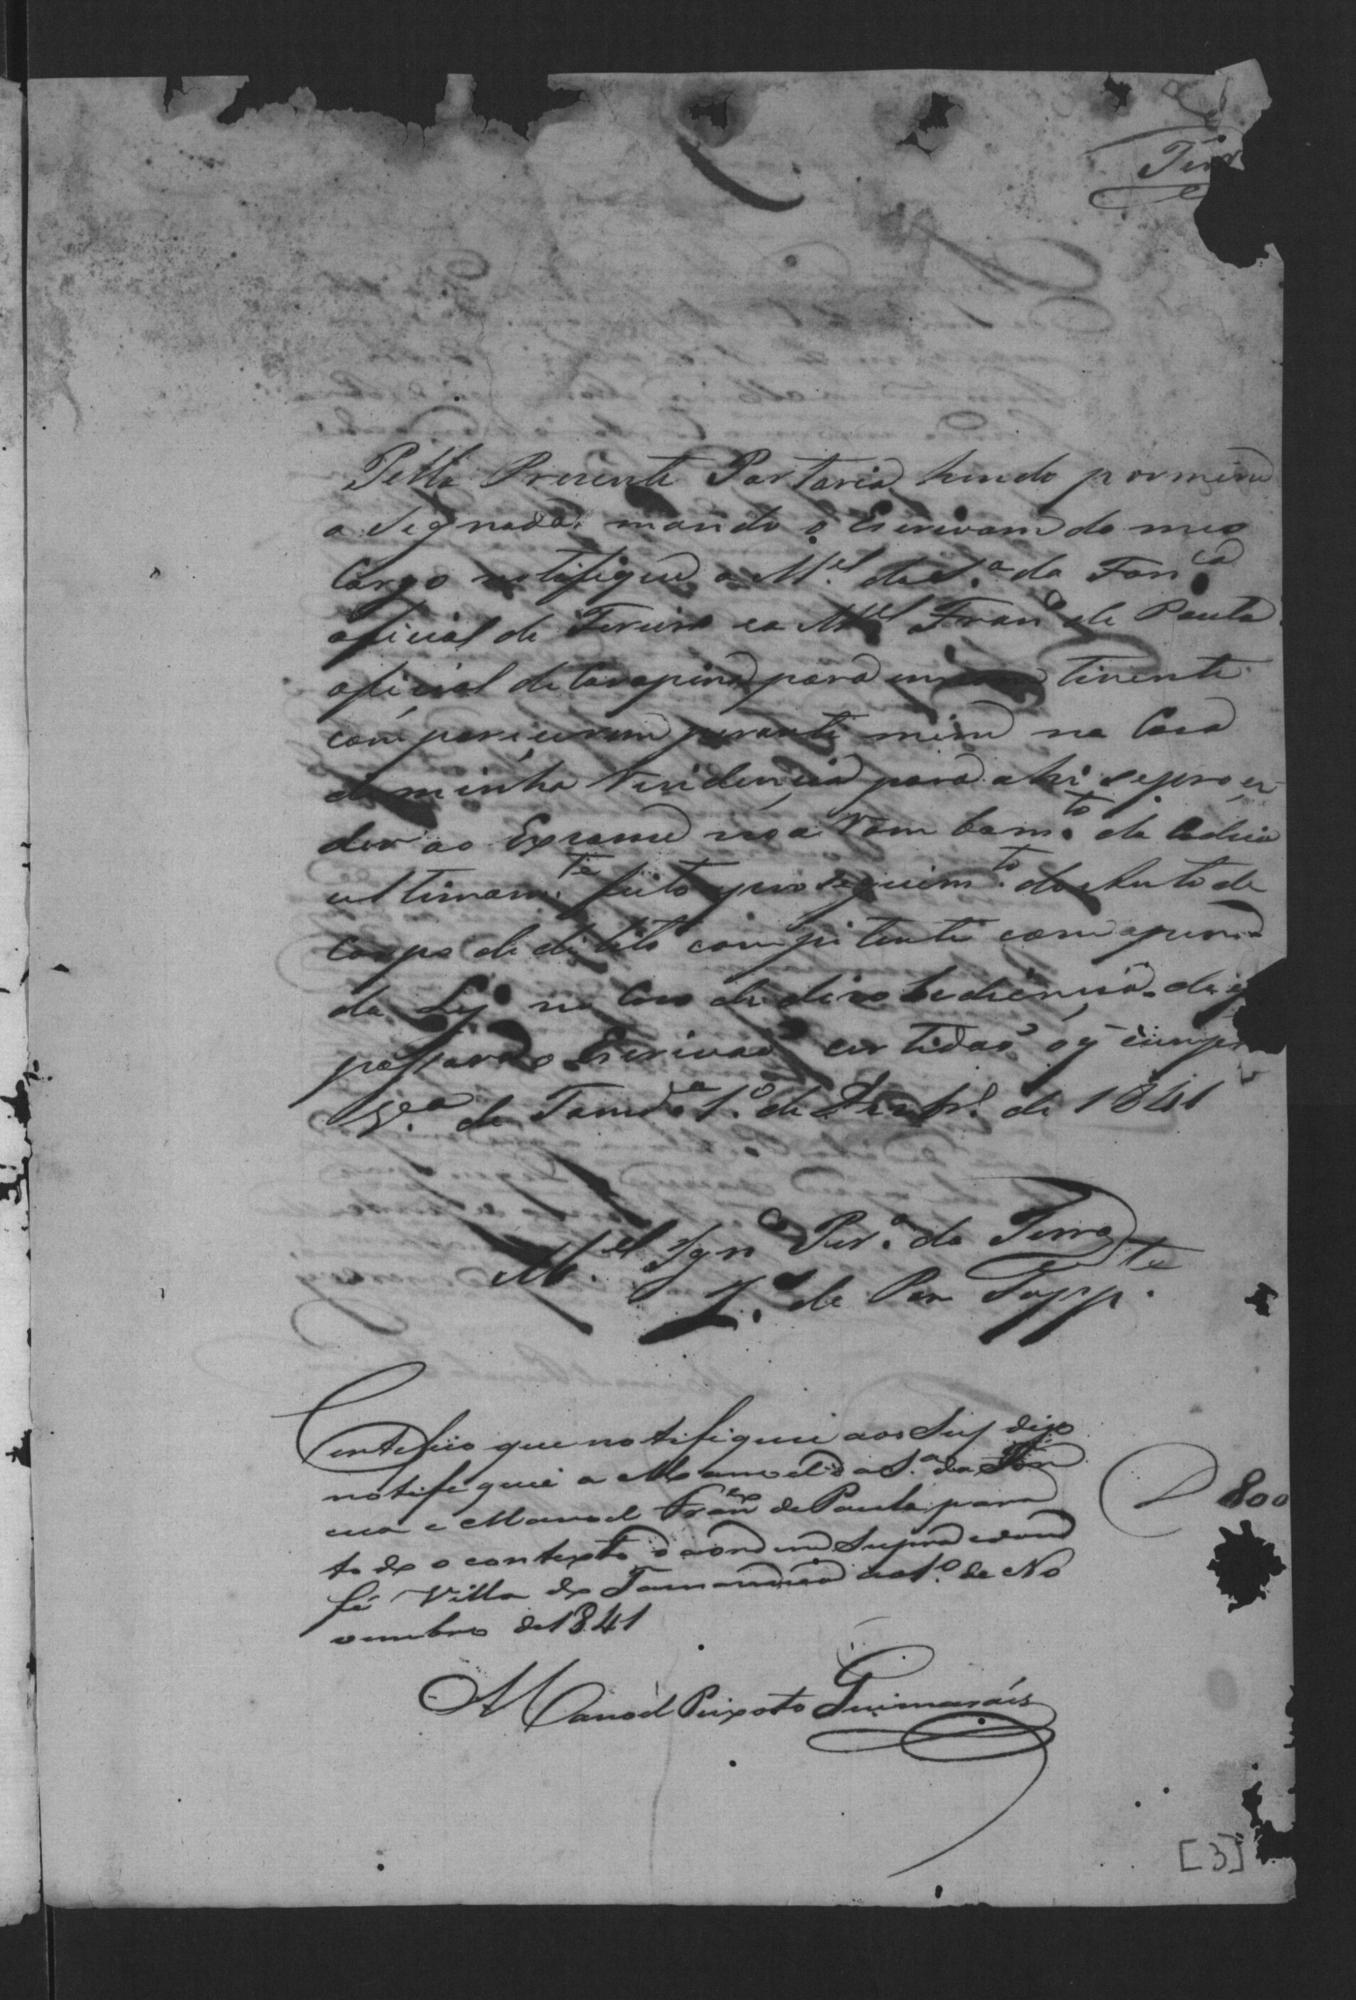 Terr
Pella Prezente Portaria hindo por mim
a Segnada. mando o Escrivam do meu
Cargo notifique a M.el da S.a da Fon.ca
oficial de Fereiro ea M.el Fran.co de Paula
oficial de Carapina para incontinente
comparicerem perante mim na Caza
de minha Rezidencia para ahi seproce
der ao Exzame no a Rom bam.to da Cadeia
ultimam.te feito, prosiguim.to do Auto de
Corpo de dilito competente com apena
da Ley no Cazo de dizobediencia. de q
passará o Escrivaõ certidaõ oq cumpr
V.a de Tamd.a 1.o de de 1841
M.el Ign.co Per.a da Terra
J. de Paz Supp.te
Certefico que notifiquei aos Sup digo
notifiquei a Manoel da S.a da Fon
ceca e Manoel Fran.co de Paula para
to do o contexto daordem Supra edou
fé Villa de Tamanduá ao 1.o de No
vembro de 1841
Manoel Peixoto Guimaráis
800
[3]